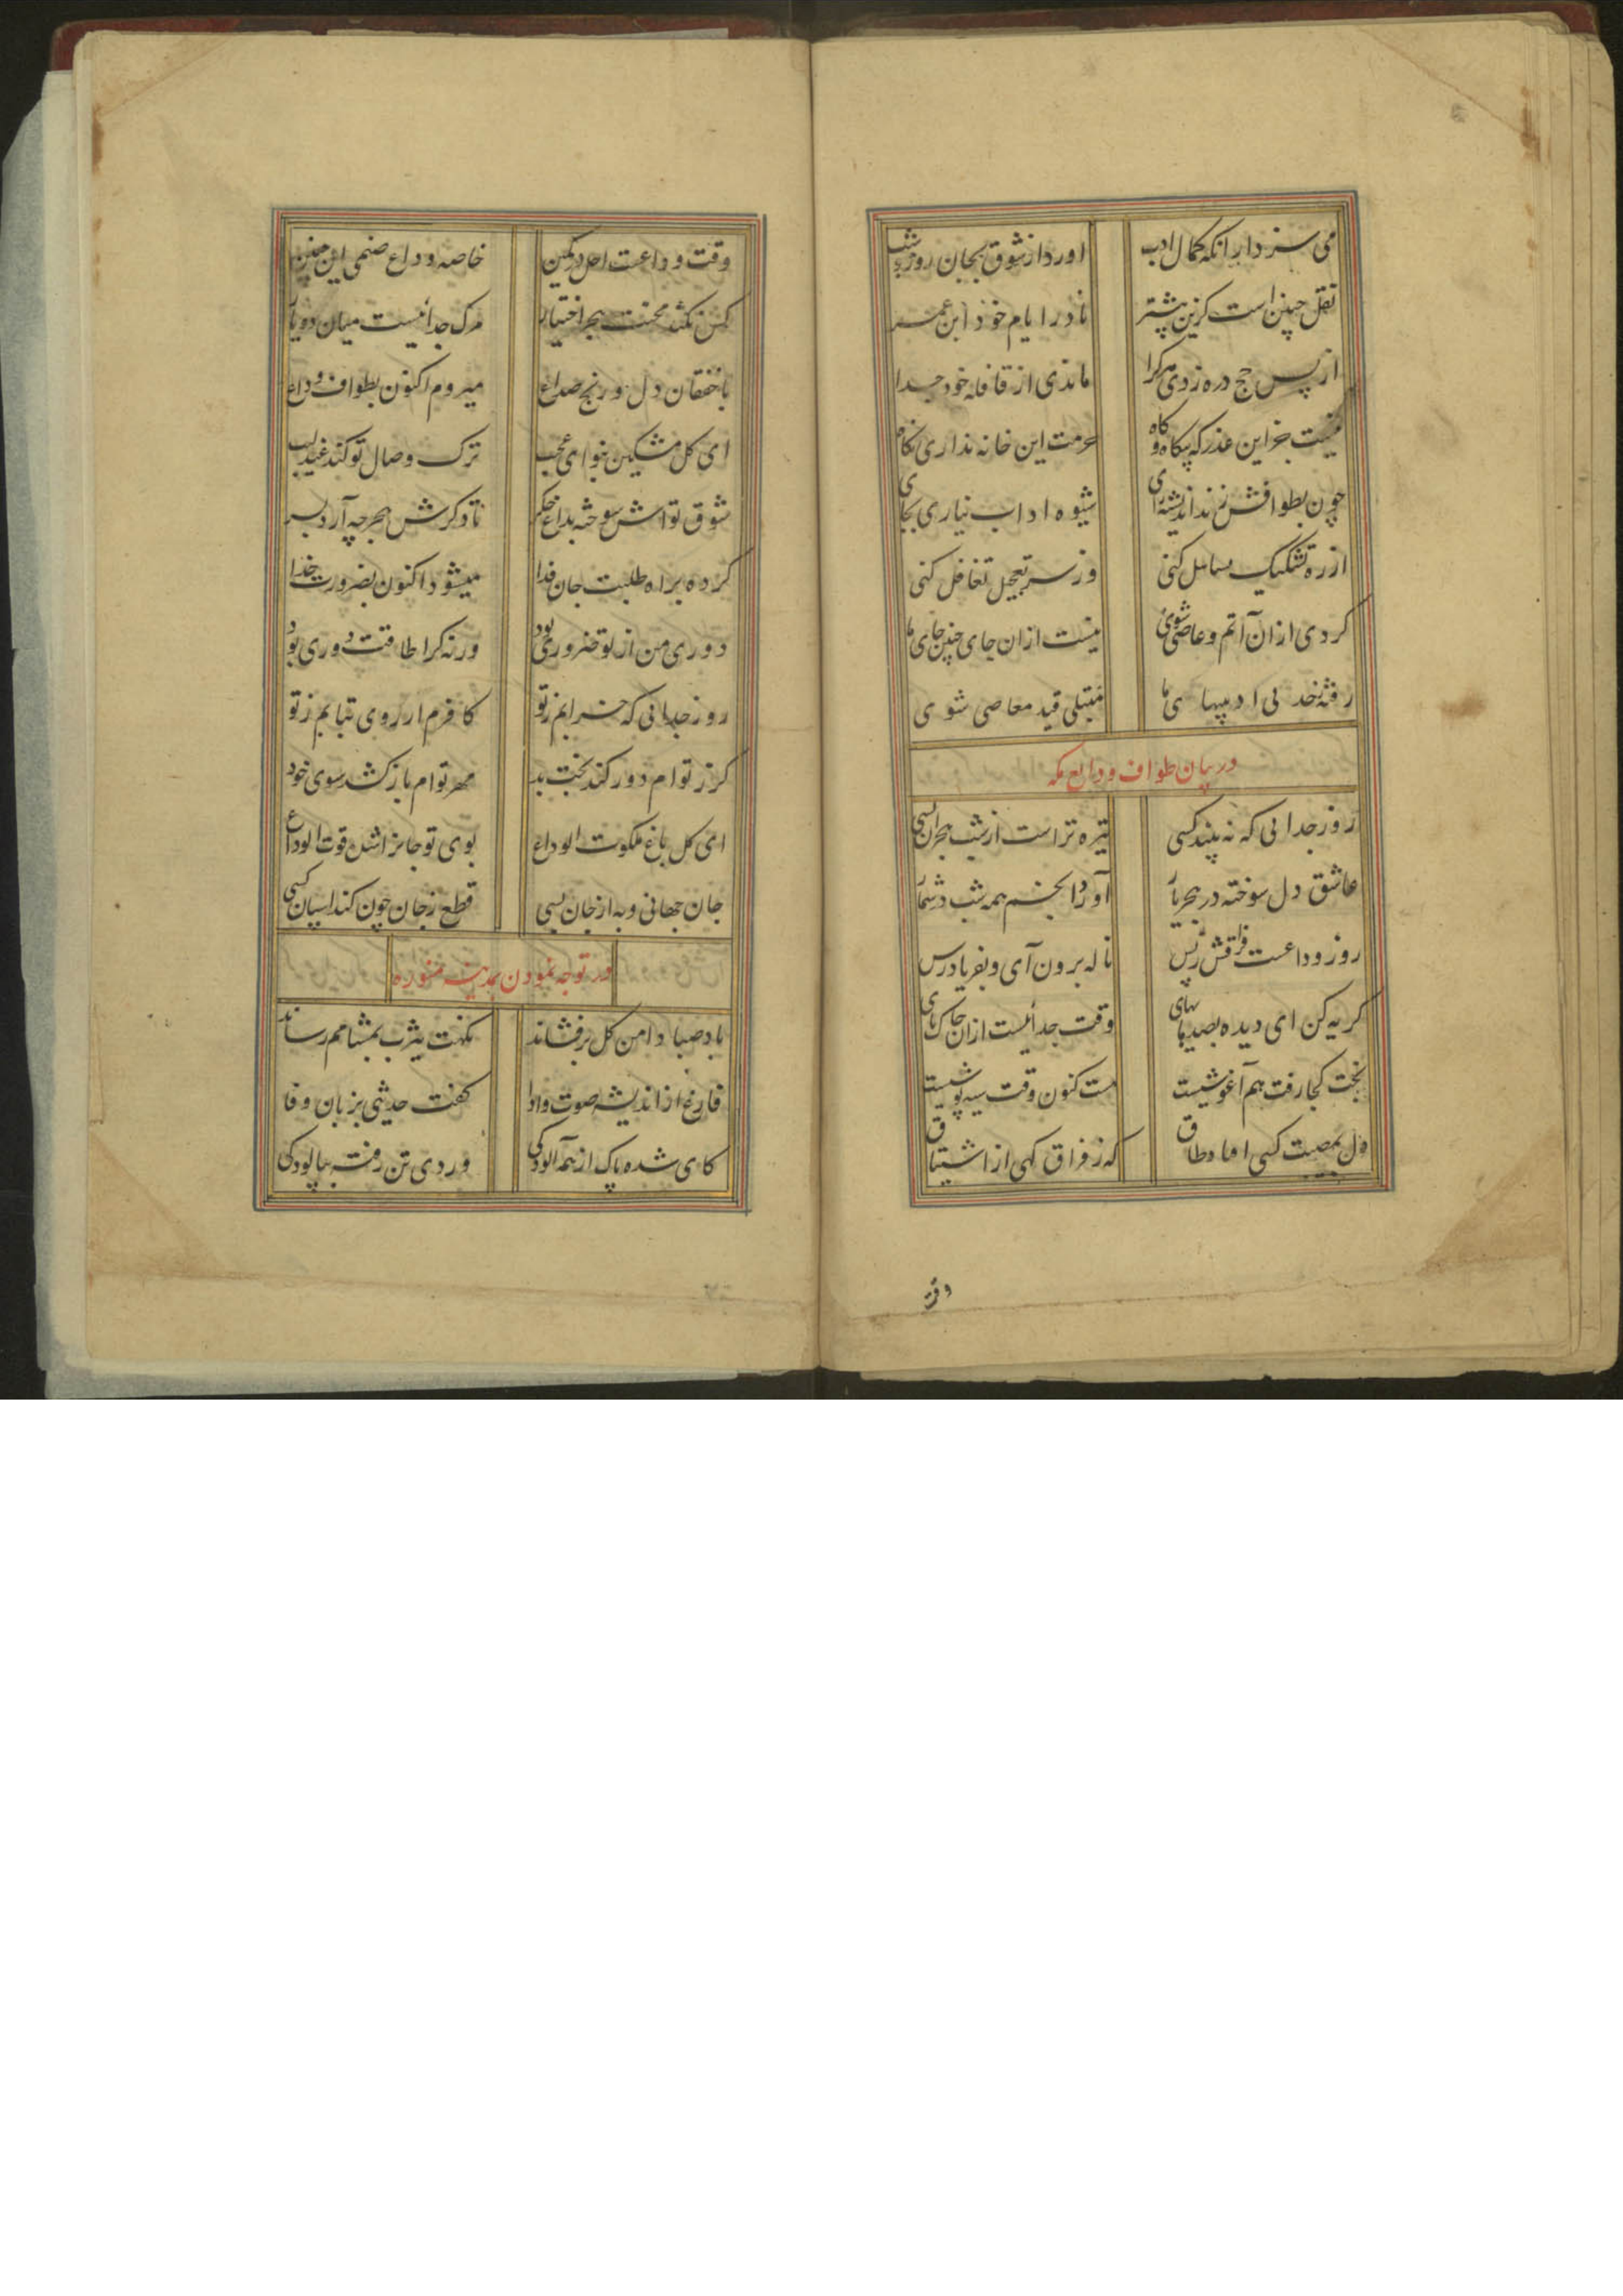 می سزد ار انکه کمال ادب اورد از شوق بجان روز و شب
نقل چنین است کزین پیشتر نادر ایام خود ابن عمر
از پس حج دره زدی مر کرا ماندی از قافله خود جدا
نیست جز این عذر که بیگاه و گاه حرمت این خانه نداری نگاه
چون بطوافش زند اندیشه رای شیوه اداب نیاری بجای
از ره تشکیک تساهل کنی وز سر تعجیل تغافل کنی
کردی از ان آثم و عاصی شوی نیست از ان جای چنین جای ما
رفته ز حد بی ادبیهای ما مبتلی قید معاصی شوی
در بیان طواف وداع مکه
روز جدائی که نه بیند کسی تیره تر است از شب هجران بسی
عاشق دل سوخته در هجر یار آورد انجم همه شب در شمار
روز وداعست فراقش ز پس ناله برون آی و بفریاد رس
گریه کن ای دیده بصد های های وقت جدائیست از ان خاک پای
بخت کجا رفت هم آغوشیست هست کنون وقت سیه پوشیست
دل بمصیبت کسی اما و طاق که ز فراق گهی از اشتیاق
وقت
وقت وداعست اجل در کمین خاصه وداع صنمی این چنین
کس نکند محنت هجر اختیار مرک جدائیست میان دو یار
با خفقان دل و رنج صداع میروم اکنون بطواف وداع
ای کل مشکین بنوای عجب ترک وصال تو کند عندلیب
شوق تواش سوخته بداغ جگر تا دگرش هجر چه آرد بسر
کرده براه طلبت جان فدا میشود اکنون بضرورت جدا
دوری من از تو ضروری بود ورنه کرا طاقت دوری بود
روز جدائی که خرابم ز تو کافرم ار روی بتابم ز تو
کر ز توام دور کند بخت بد مهر توام باز کشد سوی خود
ای کل باغ ملکوت الوداع بوی تو جانرا شده قوت الوداع
جان جهانی و به از جان بسی قطع ز جان چون کند اسان کسی
در توجه نمودن بمدینه منوره
باد صبا دامن کل برفشاند نکهت یثرب بمشامم رساند
فارغ از اندیشه صوت و ادا گفت حدیثی بزبان وفا
کای شده پاک از همه آلودکی وردی تن رفته بپالودکی